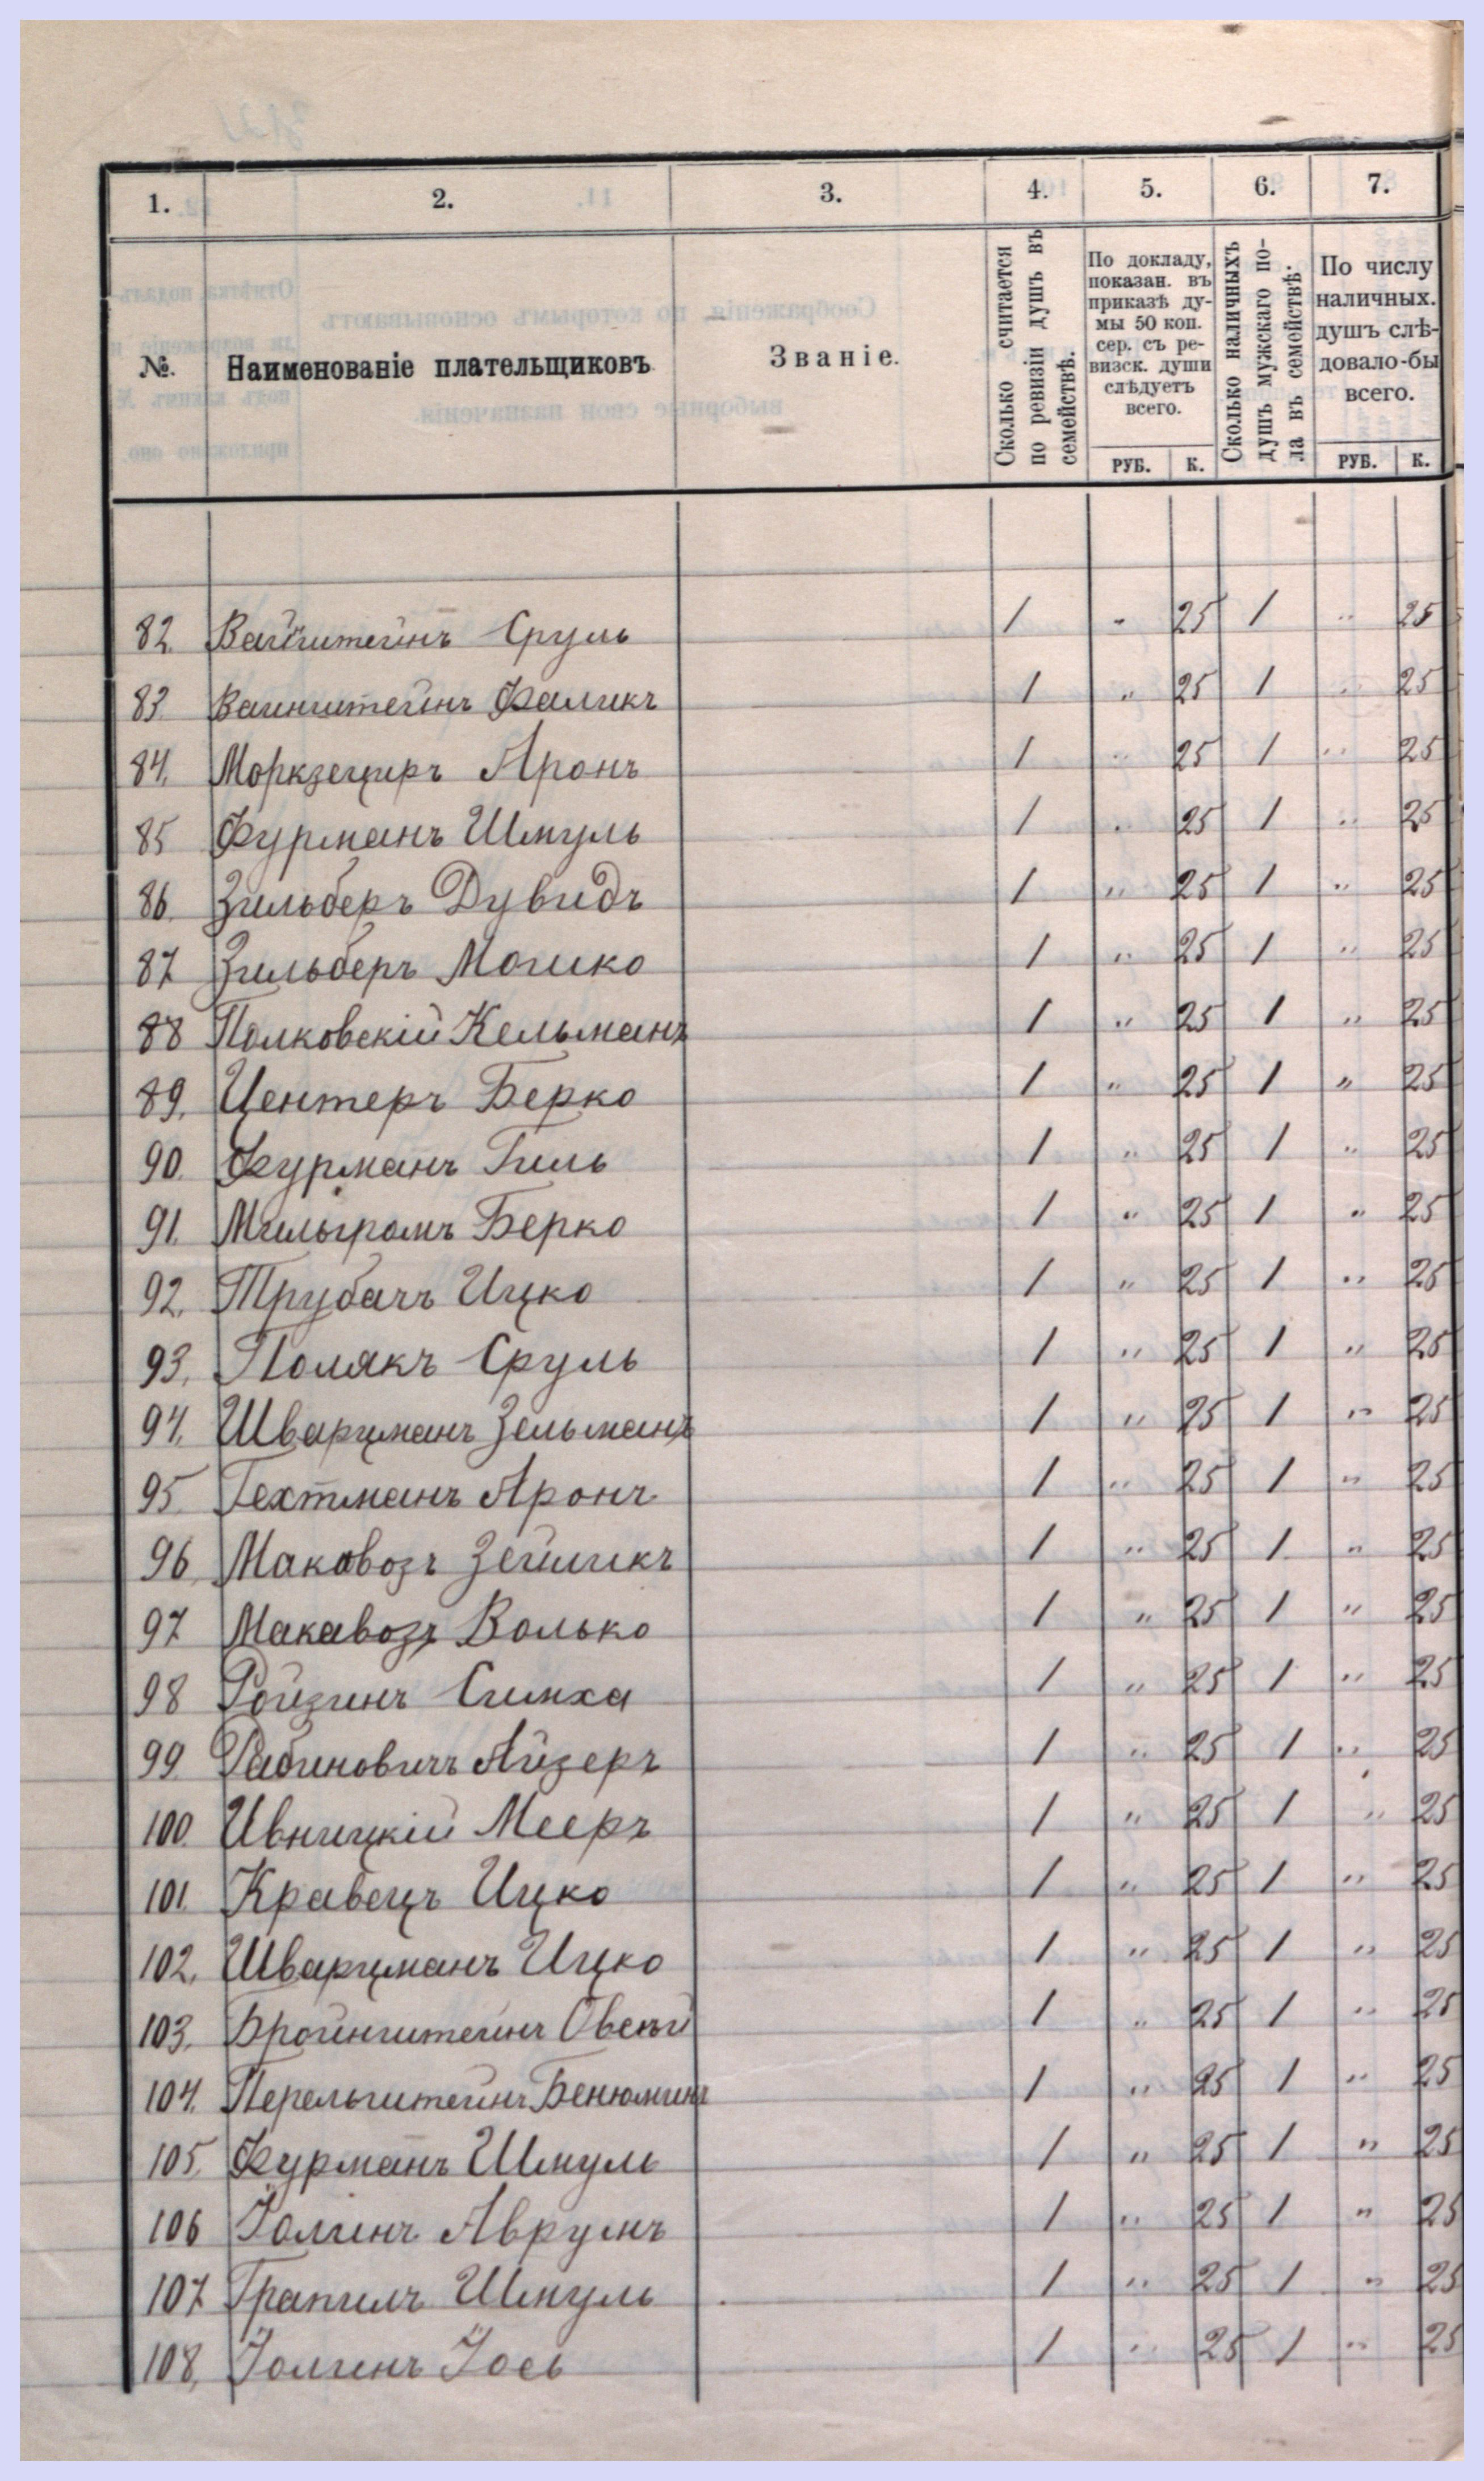 1. 2. 3. 4. 5. 6. 7.
№. Наименованіе плательщиковъ Званіе. Сколько считается по ревизіи душъ въ семействѣ. По докладу, показан. въ приказѣ думы 50 коп. сер. съ ревизск. души слѣдуетъ всего. РУБ. К. Сколько наличныхъ душъ мужскаго пола въ семействѣ. По числу наличныхъ. душъ слѣдовало-бы всего. РУБ. К.
82. Вайнштейнъ Сруль 1 " 25 1 " 25
83. Ваинштейнъ Фаликъ 1 " 25 1 " 25
84. Моркзецеръ Аронъ 1 " 25 1 " 25
85 Фурманъ Шмуль 1 " 25 1 " 25
86. Зильберъ Дувидъ 1 " 25 1 " 25
87 Зильберъ Мошко 1 " 25 1 " 25
88 Полковскій Кельманъ 1 " 25 1 " 25
89. Центеръ Берко 1 " 25 1 " 25
90. Фурманъ Гиль 1 " 25 1 " 25
91. Мильгромъ Берко 1 " 25 1 " 25
92. Трубачъ Ицко 1 " 25 1 " 25
93. Полякъ Сруль 1 " 25 1 " 25
94. Шварцманъ Зельманъ 1 " 25 1 " 25
95. Гехтманъ Аронъ 1 " 25 1 " 25
96. Маковозъ Зейликъ 1 " 25 1 " 25
97 Макавозъ Волько 1 " 25 1 " 25
98 Ройзинъ Симха 1 " 25 1 " 25
99. Рабиновичъ Айзеръ 1 " 25 1 " 25
100. Ивницкій Мееръ 1 " 25 1 " 25
101. Кравецъ Ицко 1 " 25 1 " 25
102. Шварцманъ Ицко 1 " 25 1 " 25
103. Бройнштейнъ Овсѣй 1 " 25 1 " 25
104. Перельштейнъ Бенюминъ 1 " 25 1 " 25
105. Фурманъ Шмуль 1 " 25 1 " 25
106 Іолинъ Аврумъ 1 " 25 1 " 25
107 Трапилъ Шмуль 1 " 25 1 " 25
108. Іолинъ Іось 1 " 25 1 " 25